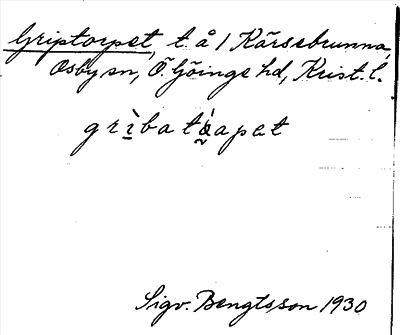 Griptorpet, t. å 1 Kärsebrunna,
Osby sn, Ö. Göinge hd, Krist. l.
grìbatòapet
Sigv. Bengtsson 1930